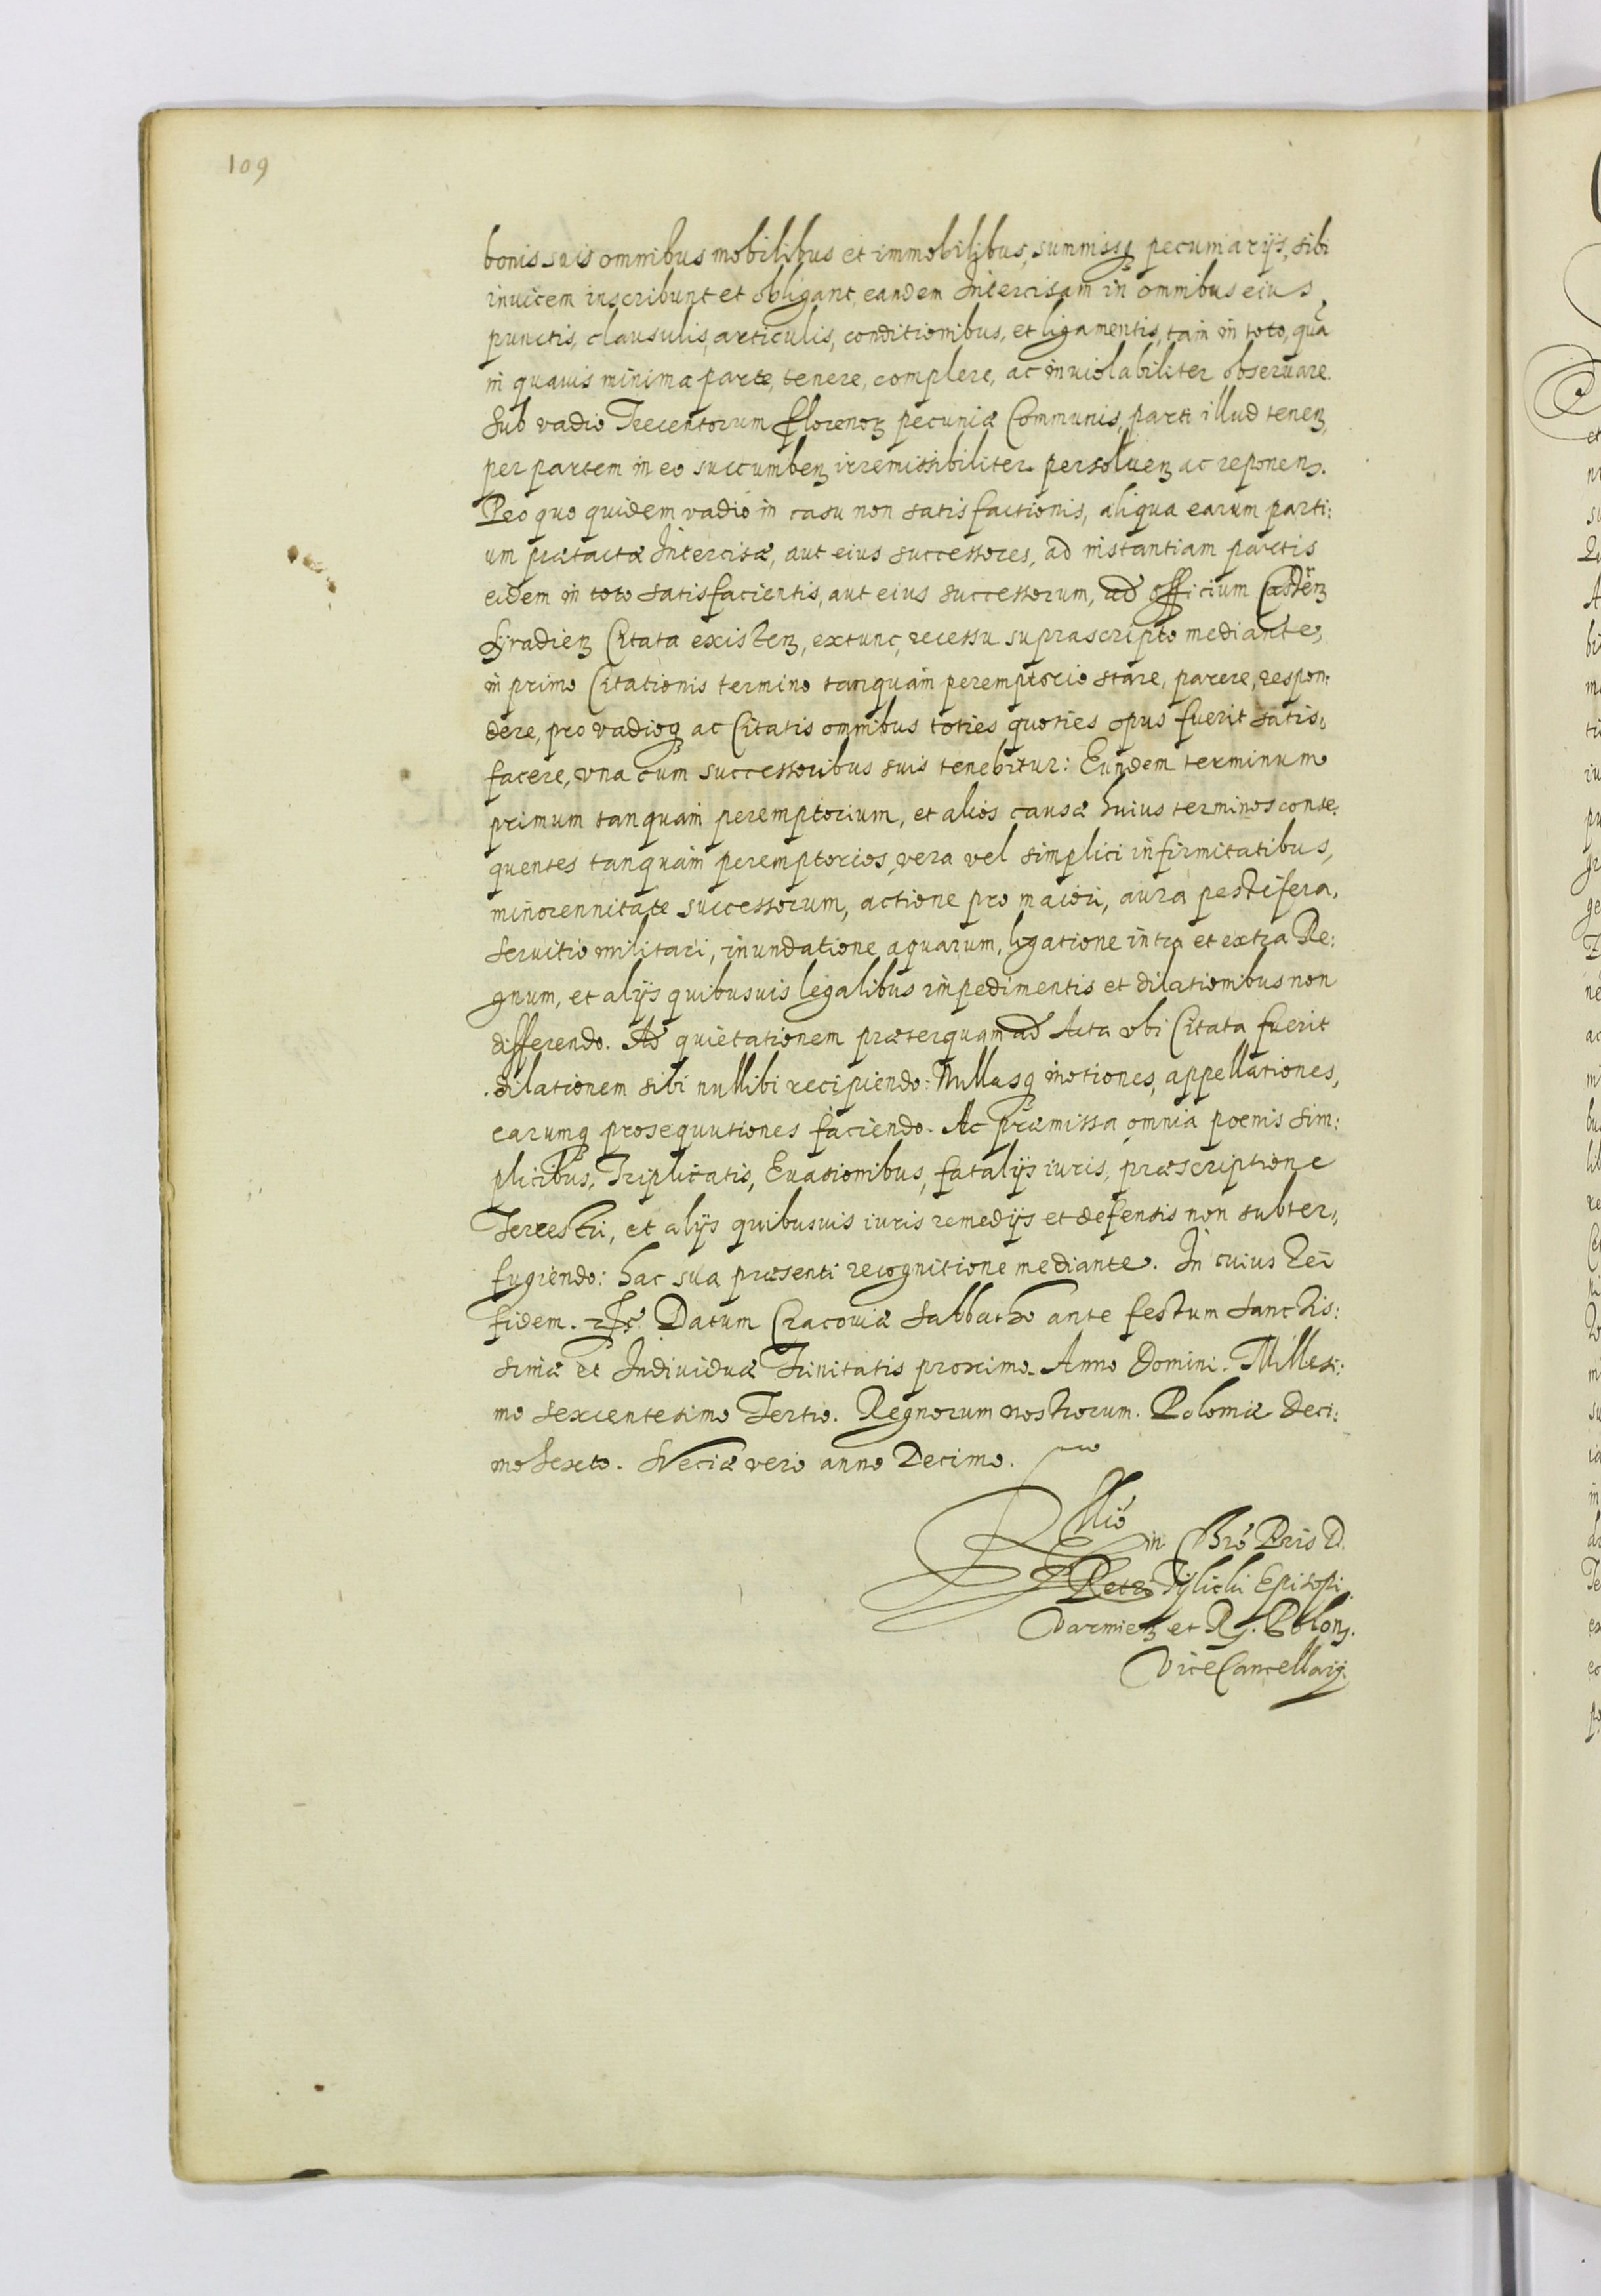 109
bonis suis omnibus mobilibus et immobilibus, summisq3 pecuniarijs, sibi
inuicem inscribunt et obligant, eandem Intercisam in omnibus eius
punctis, clausulis, articulis, conditionibus, et ligamentis, tam in toto, quã
in quauis minima parte, tenere, complere, ac inuiolabiliter obseruare.
Sub vadio Trecentorum Florenoꝝ pecuniæ Communis, parti illud tenenꝫ,
per partem in eo succumbenꝫ irremissibiliter persoluenꝫ ac reponenꝫ.
Pro quo quidem vadio in casu non satisfactionis, aliqua earum parti:
um prætactæ Intercisæ, aut eius successores, ad instantiam partis
eidem in toto satisfacientis, aut eius successorum, ad officium Castrenꝫ
Syradienꝫ Citata existenꝫ, extunc, recessu suprascripto mediante,
in primo Citationis termino tanquam peremptorio stare, parere, respon:
dere, pro vadioq3 ac Citatis omnibus toties quoties opus fuerit satis:
facere, vna cum successoribus suis tenebitur: Eundem terminum
primum tanquam peremptorium, et alios causæ huius terminos conse:
quentes tanquam peremptorios, vera vel simplici infirmitatibus,
minorennitate successorum, actione pro maiori, aura pestifera,
seruitio militari, inundatione aquarum, legatione intra et extra Re:
gnum, et alijs quibusuis legalibus impedimentis et dilationibus non
differendo. Ad quietationem præterquam ad Acta vbi Citata fuerit
dilationem sibi nullibi recipiendo: Nullasq3 motiones, appellationes,
earumq3 prosequutiones faciendo. Ac præmissa omnia poenis sim:
plicibus, Triplicatis, Euasionibus, fatalijs iuris, præscriptione
Terrestri, et alijs quibusuis iuris remedijs et defensis non subter:
fugiendo: hac sua præsenti recognitione mediante. In cuius Rei
fidem. Datum Cracouiæ Sabbatho ante festum Sanctis:
simæ et Indiuiduæ Trinitatis proximo. Anno Domini. Millesi:
mo sexcentesimo Tertio. Regnorum nostrorum. Poloniæ Deci:
mo Sexto. Sveciæ vero anno Decimo.
Rllio
in Chro Pris D.
Petri Tylicki Episcopi
Varmienꝫ et R. Polonꝫ.
ViceCancellarij.